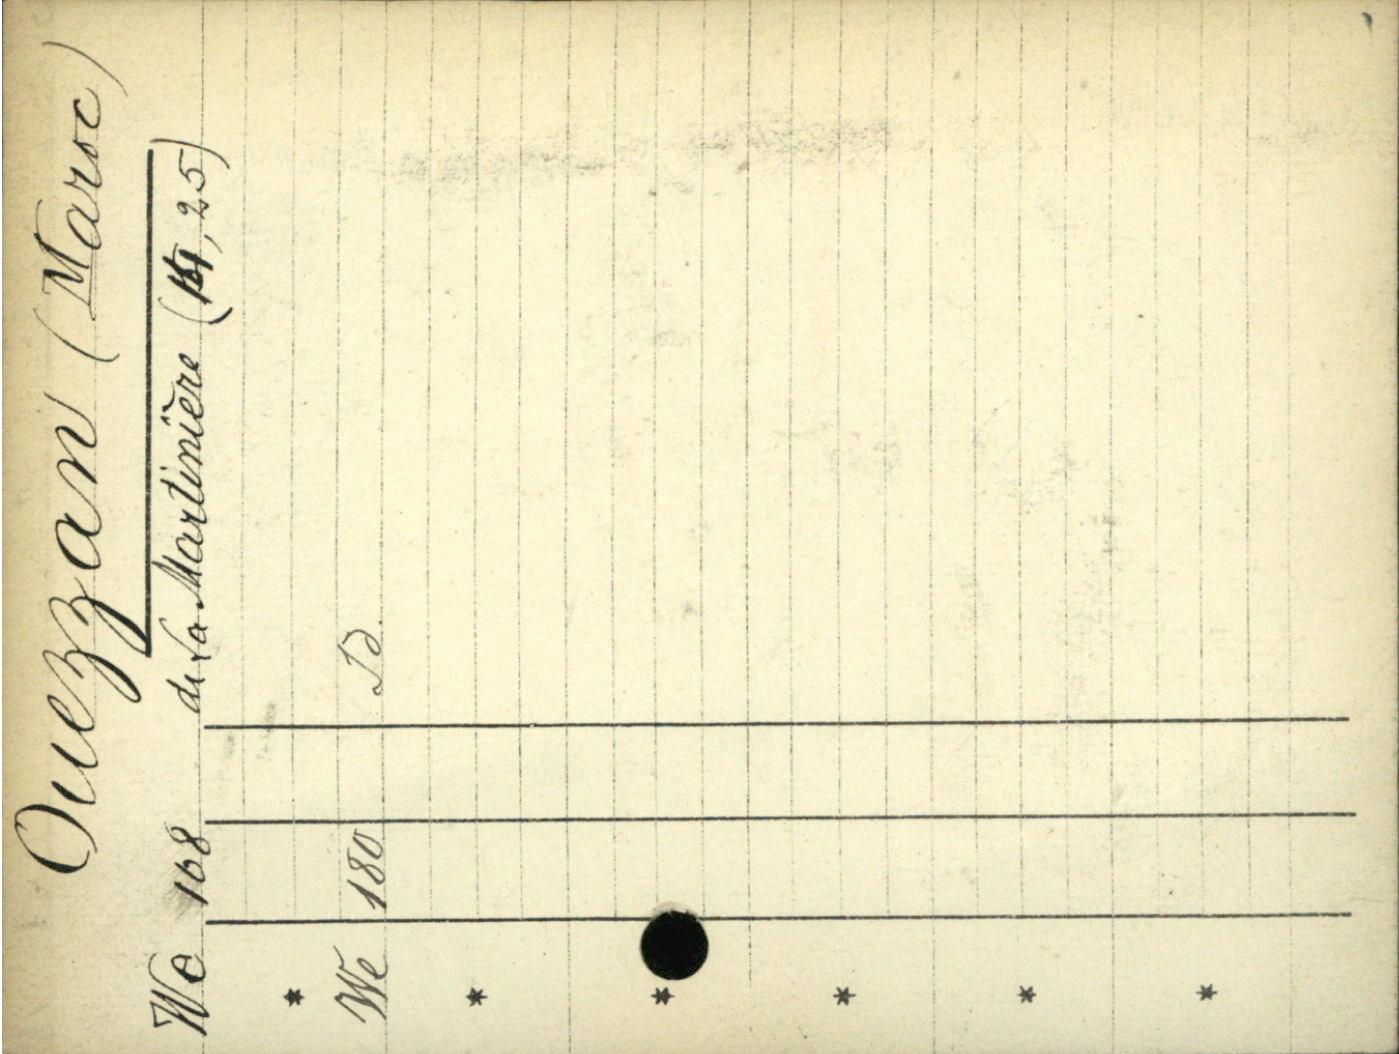 Ouezzan (Maroc)
We 108 de La Martinière ( , 25)
*
We 180 Id.
*
*
*
*
*